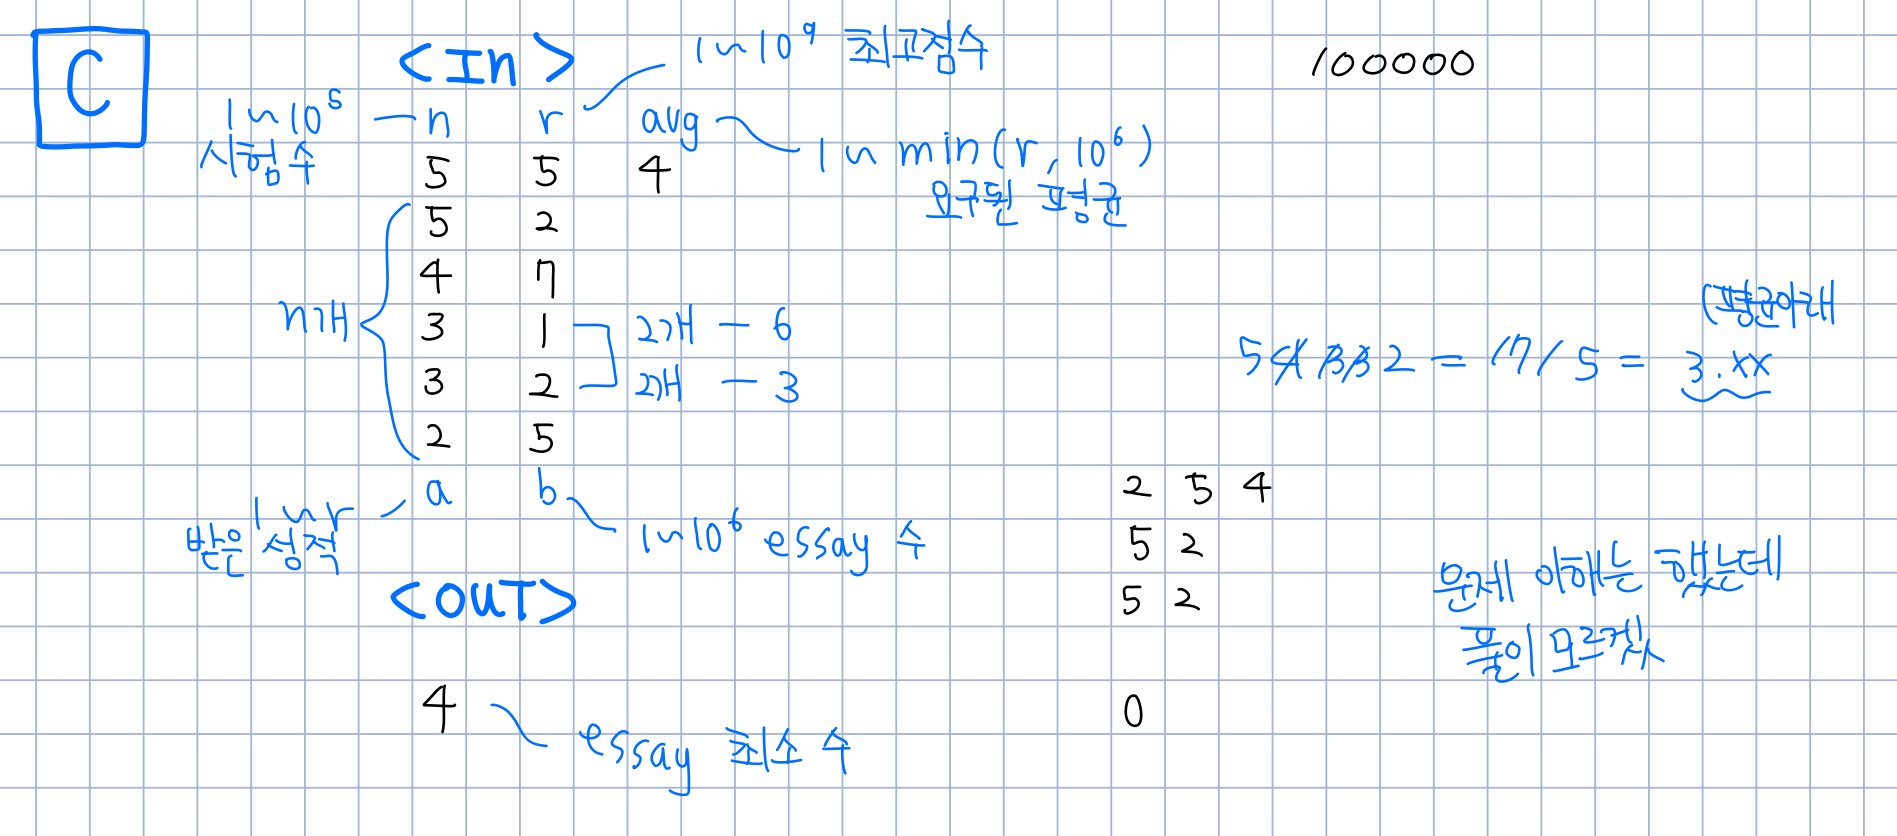 C
<In>
1~10⁹ 최고점수
100000
1~10⁵
시험수
n r avg
1~min(r, 10⁶)
요구된 평균
5 5 4
5 2
4 7
n개
3 1
2개 - 6
3 2
2개 - 3
2 5
(평균아래
5 4 3 3 2 = 17/5 = 3.xx
a b
1~r
받은 성적
1~10⁶ essay 수
2 5 4
5 2
5 2
문제 이해는 했는데
풀이 모르겠
<OUT>
4
essay 최소 수
0